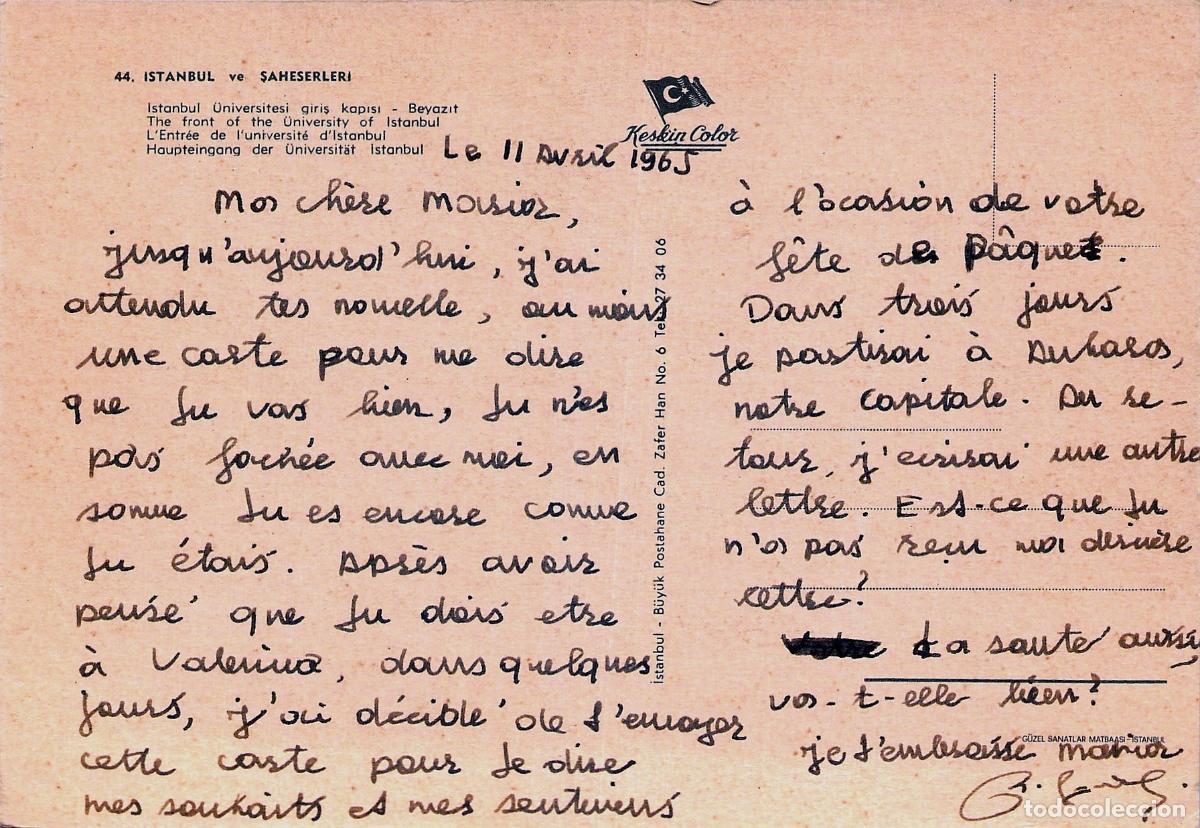 44. ISTANBUL ve ŞAHESERLERİ
İstanbul Üniversitesi giriş kapısı - Beyazıt
The front of the Üniversity of İstanbul
L'Entrée de l'université d'İstanbul
Haupteingang der Üniversität İstanbul
Keskin Color
Le 11 Avril 1965
Ma chère Maria,
jusqu'aujourd'hui, j'ai
attendu tes nouvelle, au moins
une carte pour me dire
que tu vas bien, tu n'es
pas fachée avec moi, en
somme tu es encore comme
tu étais. Après avoir
pensé que tu dois etre
à Valencia, dans quelques
jours, j'ai décidé de t'envoyer
cette carte pour te dire
mes souhaits et mes sentiments
İstanbul - Büyük Postahane Cad. Zafer Han No. 6 Tel: 27 34 06
à l'ocasion de votre
fête de Pâques.
Dans trois jours
je partirai à Ankara,
notre capitale. Au re-
tour, j'ecrirai une autre
lettre. Est-ce que tu
n'as pas reçu ma dernière
lettre?
La sante aussi,
vas-t-elle bien?
GÜZEL SANATLAR MATBAASI - İSTANBUL
je t'embrasse Maria
todocoleccion